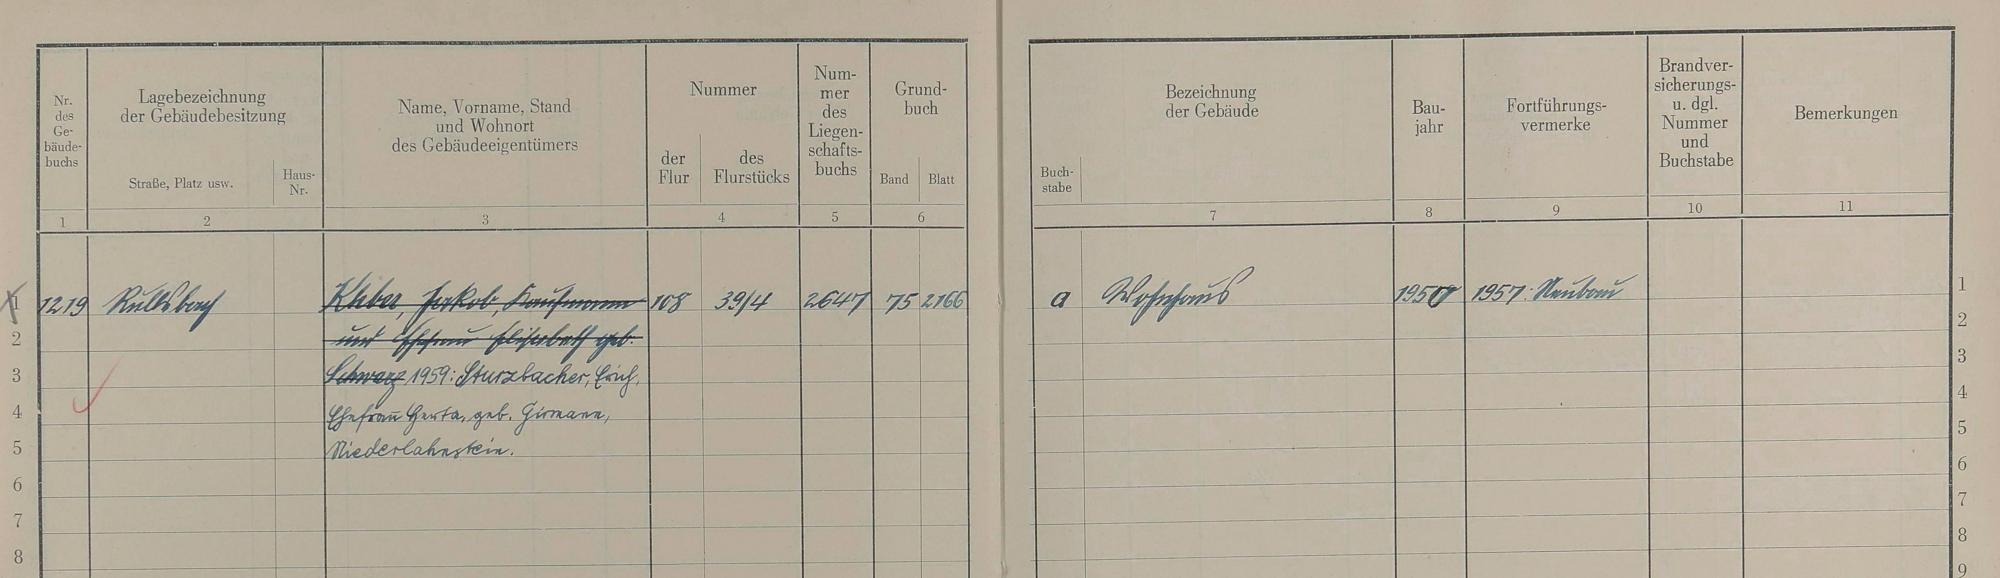 Nr.
des
Ge-
bäude-
buchs
Lagebezeichnung
der Gebäudebesitzung
Straße, Platz usw.
Haus-
Nr.
Name, Vorname, Stand
und Wohnort
des Gebäudeeigentümers
Nummer
der
Flur
des
Flurstücks
Num-
mer
des
Liegen-
schafts-
buchs
Grund-
buch
Band
Blatt
Buch-
stabe
Bezeichnung
der Gebäude
Bau-
jahr
Fortführungs-
vermerke
Brandver-
sicherungs-
u. dgl.
Nummer
und
Buchstabe
Bemerkungen
1 2 3 4 5 6 7 8 9 10 11
1 1219 Jakob, Kaufmann 108 39/4 2647 75 2166 a Wohnhaus 1957: Neubau 1
2 und Ehefrau Elisabeth geb. 2
3 Schwarz 1959: Sturzbacher, Erich, 3
4 Ehefrau Herta, geb. Girmann, 4
5 Niederlahnstein. 5
6 6
7 7
8 8
9